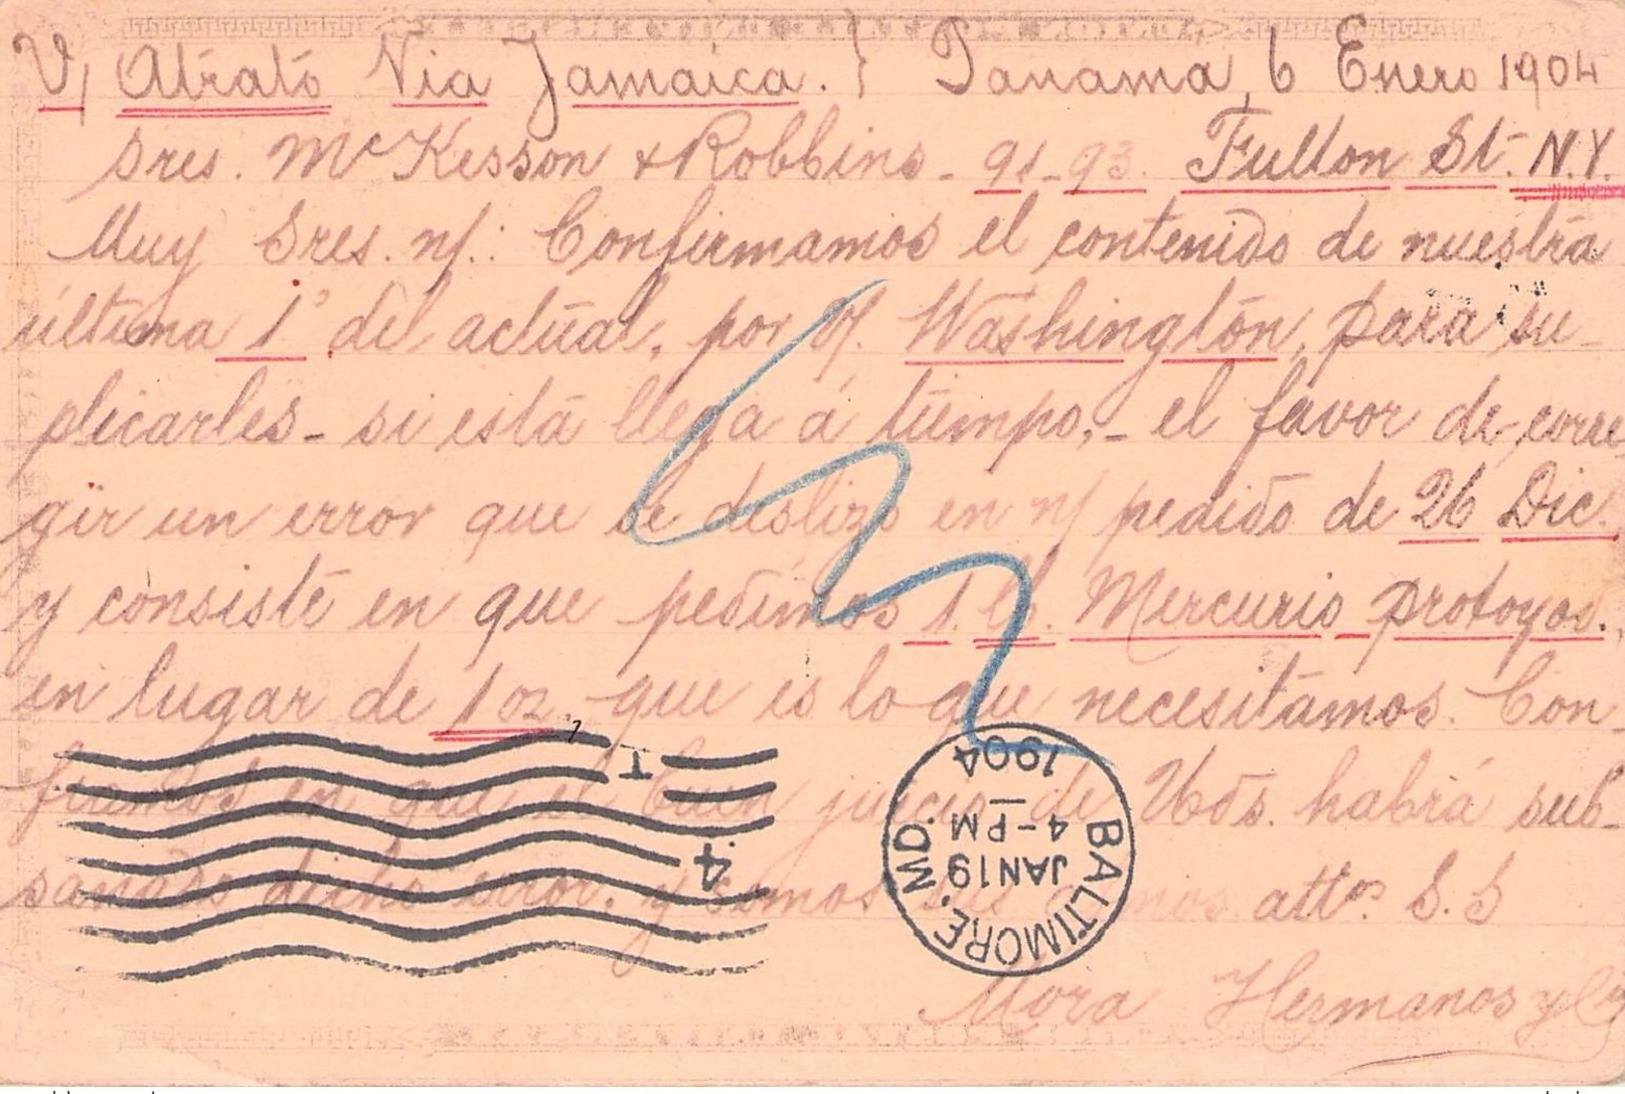 V/ Atrato Via Jamaica. } Panama, 6 Enero 1904
Sres. McKesson & Robbins - 91-93. Fulton St. N.Y.
Muy Sres. n/.: Confirmamos el contenido de nuestra
última 1° del actual, por V/. Washington, para su-
plicarles - si está llega á tiempo, - el favor de corre
gir un error que se deslizó en n/ pedido de 26 Dic.
y consiste en que pedimos 1. lb. Mercurio protoyod.
en lugar de 1 oz, que es lo que necesitamos. Con-
fiamos en que el buen juicio de Uds. habrá sub-
sanado dicho error, y somos sus attos. S. S
Mora Hermanos y Cía
T
4
BALTIMORE, MD.
JAN 19
4-PM
1904